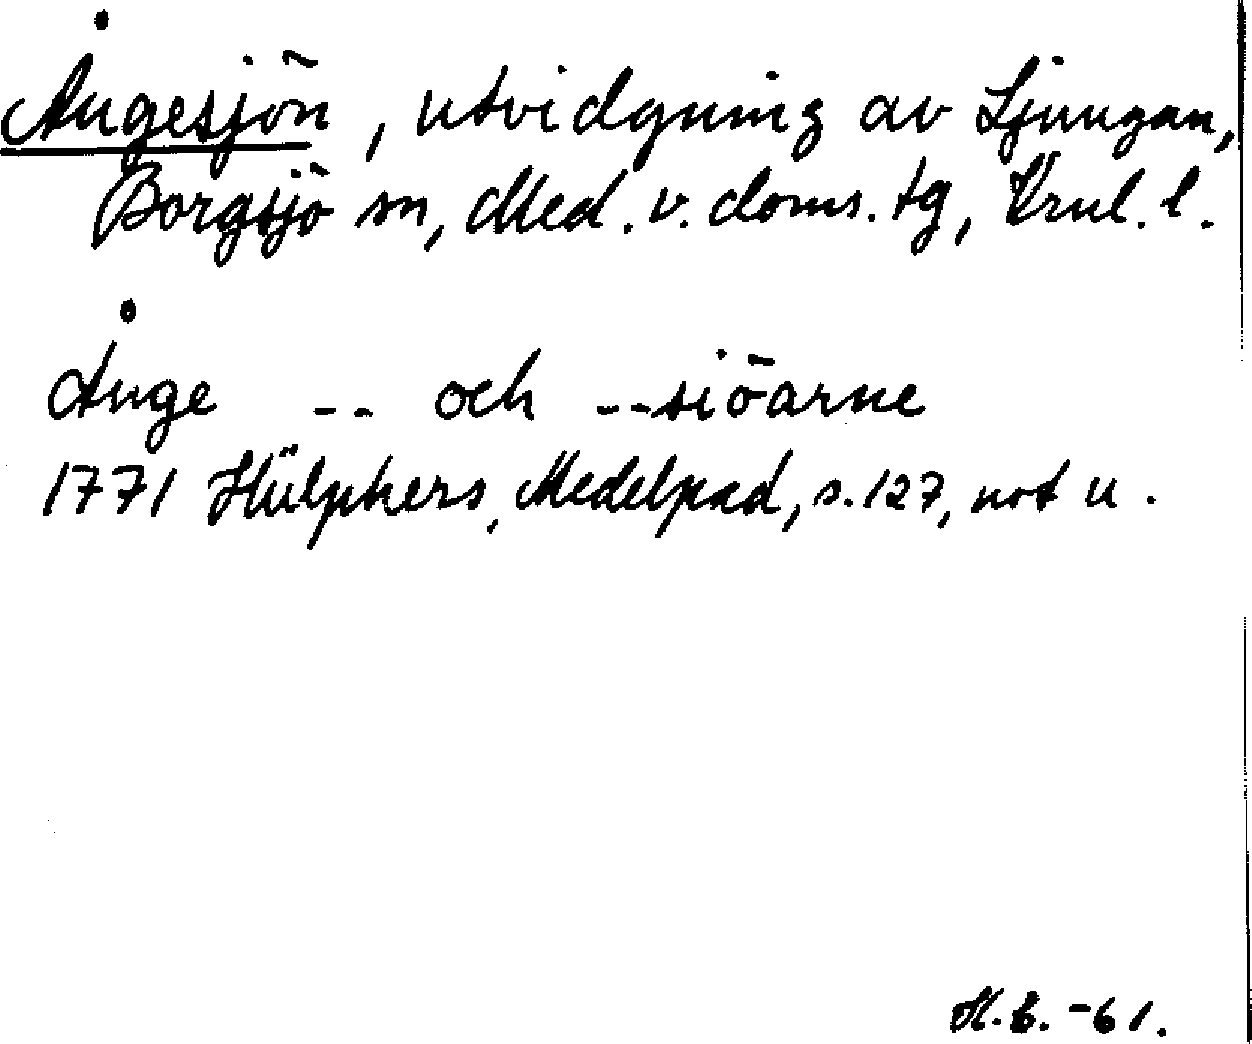 Ångesjön, utvidgning av Ljungan,
Borgsjö sn, Med. v. doms. tg, Vrnl. l.
Ånge -- och --siöarne
1771 Hülphers, Medelpad, s. 127, not u.
H.B. -61.